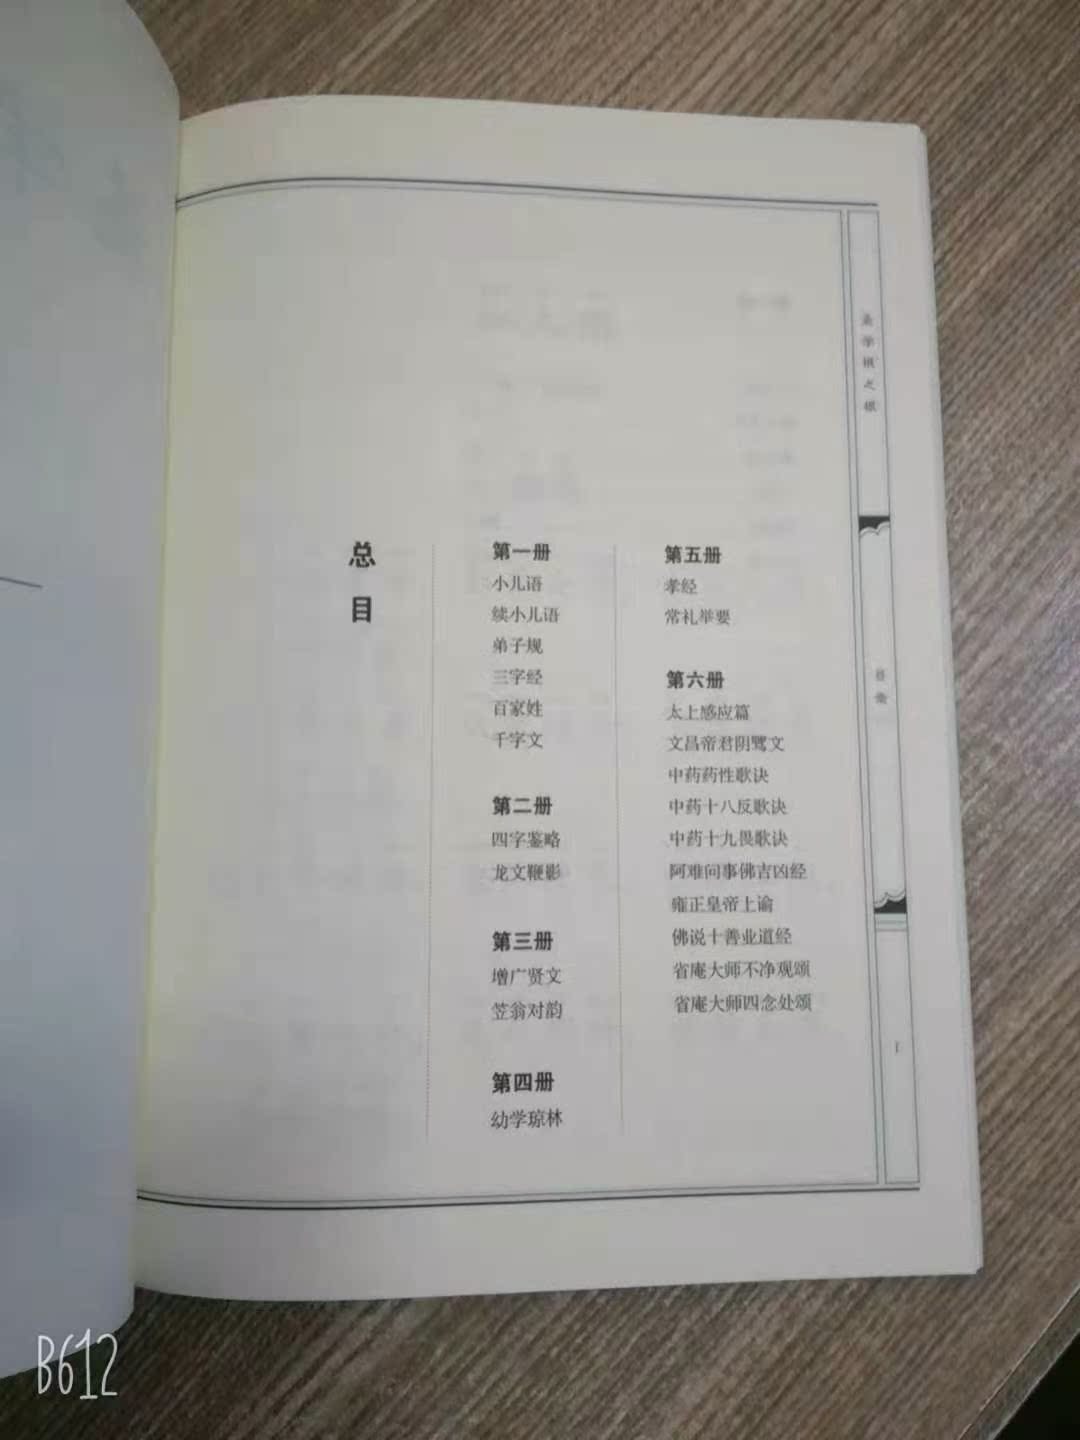 总目
第一册
小儿语
续小儿语
弟子规
三字经
百家姓
千字文
第二册
四字鉴略
龙文鞭影
第三册
增广贤文
笠翁对韵
第四册
幼学琼林
第五册
孝经
常礼举要
第六册
太上感应篇
文昌帝君阴骘文
中药药性歌诀
中药十八反歌诀
中药十九畏歌诀
阿难问事佛吉凶经
雍正皇帝上谕
佛说十善业道经
省庵大师不净观颂
省庵大师四念处颂
目录
1
B612